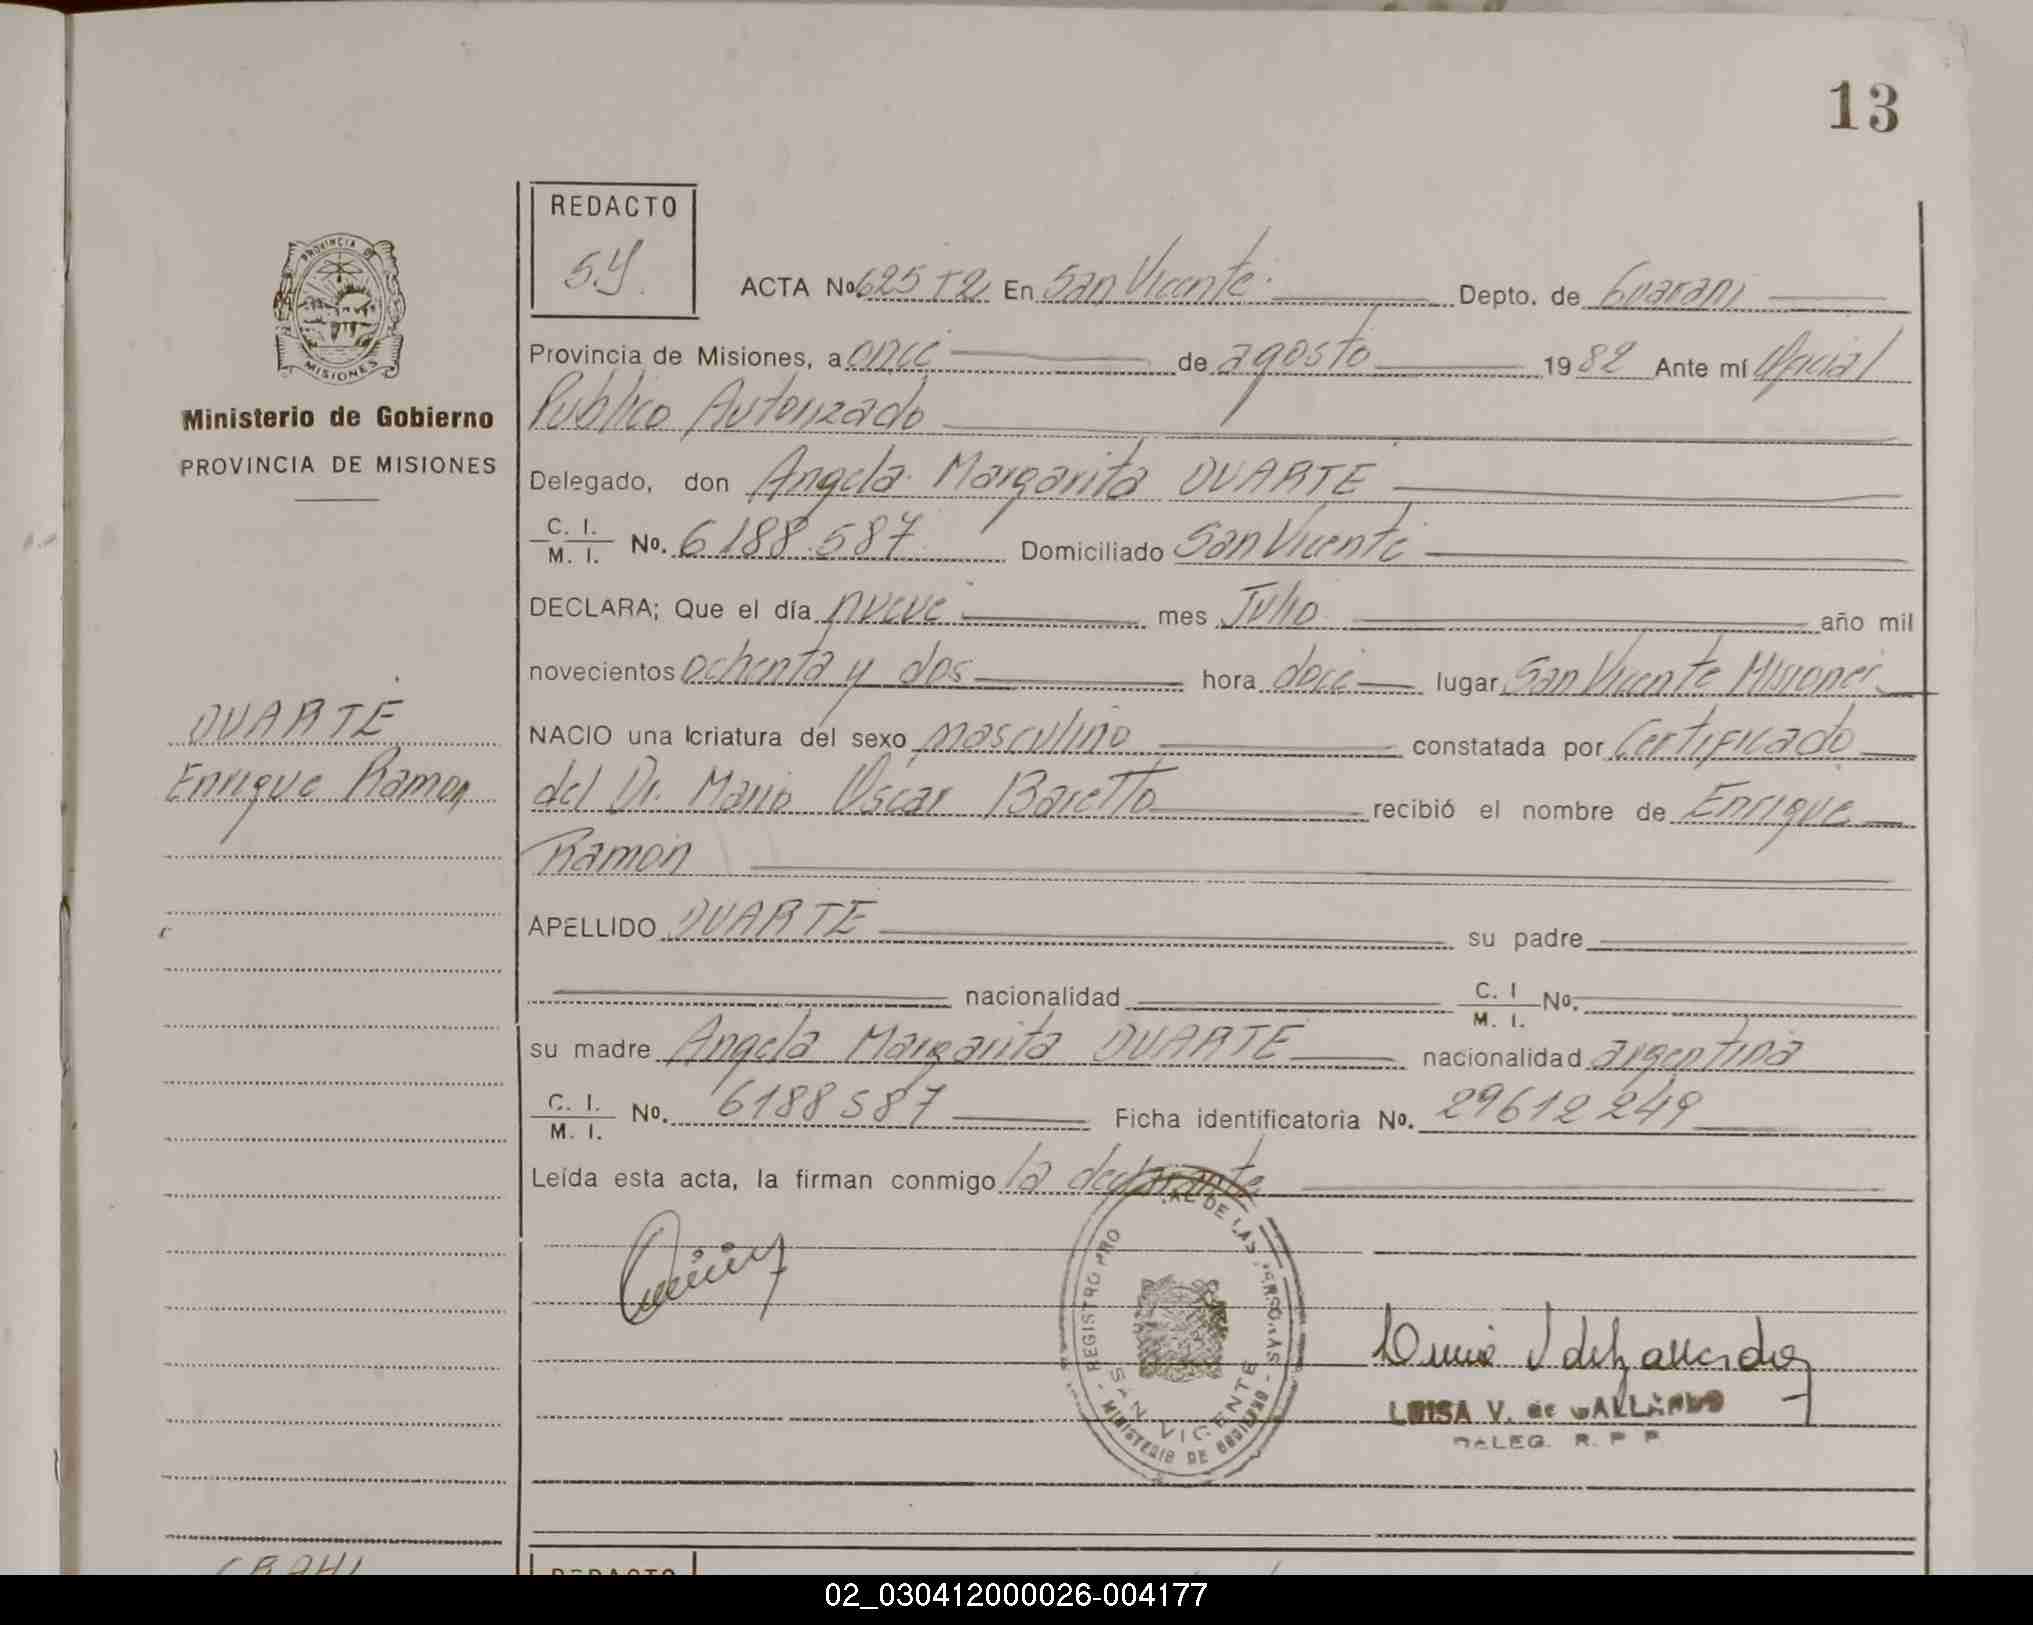 13
REDACTO
S.Y.
ACTA No 625 T2 En San Vicente Depto. de Guarani
Provincia de Misiones, a once de agosto 1982 Ante mí Oficial
Publico Autorizado
Delegado, don Angela Margarita DUARTE
C. I.
M. I. No. 6.188.587 Domiciliado San Vicente
DECLARA; Que el día nueve mes Julio año mil
novecientos ochenta y dos hora doce lugar San Vicente Misiones
NACIO una lcriatura del sexo masculino constatada por Certificado
del Dr. Mario Oscar Baretto recibió el nombre de Enrique
Ramon
APELLIDO DUARTE su padre
nacionalidad C. I
M. I. No.
su madre Angela Margarita DUARTE nacionalidad argentina
C. I.
M. I. No. 6188587 Ficha identificatoria No. 29612249
Leída esta acta, la firman conmigo la declarante
PROVINCIA DE
MISIONES
Ministerio de Gobierno
PROVINCIA DE MISIONES
DUARTE
Enrique Ramon
REGISTRO PRO AL DE LAS PERSONAS
SAN VICENTE
MINISTERIO DE GOBIERNO
LUISA V. de GALLARDO
DELEG. R. P. P.
REDACTO
02_030412000026-004177